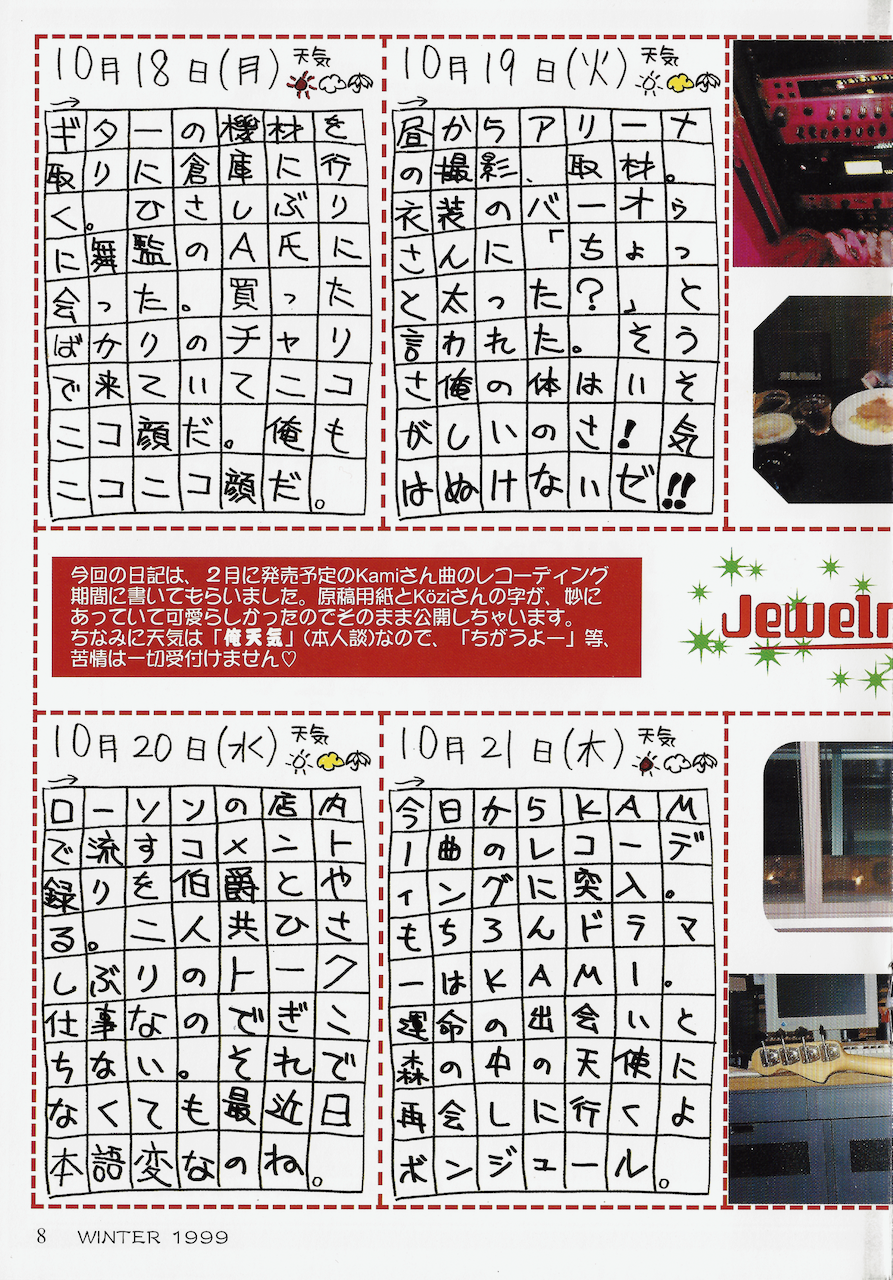 10月18日(月) 天気
→
ギターの機材を
取りに倉庫に行
く。ひさしぶり
に舞監のA氏に
会った。買った
ばかりのチャリ
で来ていてニコ
ニコ顔だ。俺も
ニコニコ顔だ。
10月19日(火) 天気
→
昼からアリーナ
の撮影、取材。
衣装のバーオゥ
さんに「ちょっ
と太った?」と
言われた。そう
さ俺の体はいそ
がしいのさ!気
はぬけないゼ!!
今回の日記は、2月に発売予定のKamiさん曲のレコーディング
期間に書いてもらいました。原稿用紙とKöziさんの字が、妙に
あっていて可愛らしかったのでそのまま公開しちゃいます。
ちなみに天気は「俺天気」(本人談)なので、「ちがうよー」等、
苦情は一切受付けません♡
Jewelr
10月20日(水) 天気
→
ローソンの店内
で流すコメント
録りを伯爵とや
る。二人共ひさ
しぶりのトーク
仕事なのでぎこ
ちない。それで
なくても最近日
本語変なのね。
10月21日(木) 天気
→
今日からKAM
I曲のレコーデ
ィングに突入。
もちろんドラマ
ーはKAMI。
運命の出会いと
森の中の天使に
再会しに行くよ
ボンジュール。
8 WINTER 1999